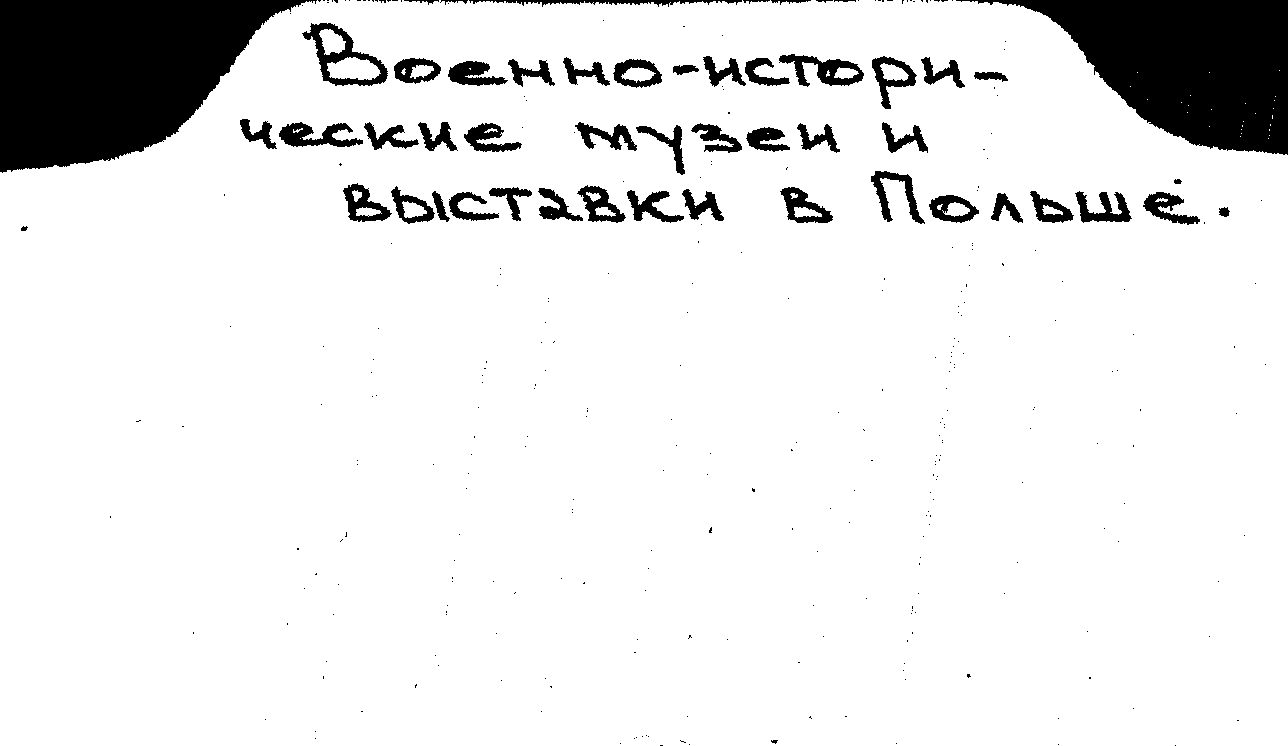 Военно-истори-
ческие музеи и
выставки в Польше.